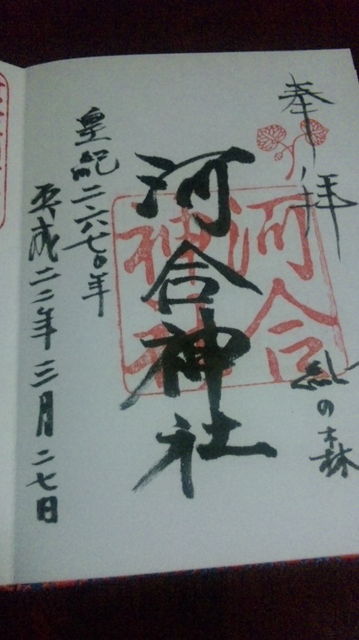 奉拝
糺の森
河合神社
河合
神社
皇紀二六七〇年
平成二二年三月二七日